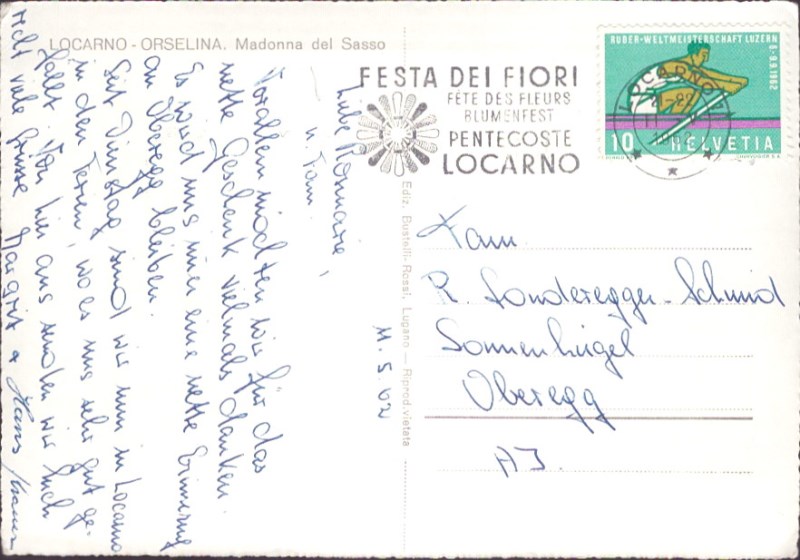 LOCARNO - ORSELINA. Madonna del Sasso
FESTA DEI FIORI
FÊTE DES FLEURS
BLUMENFEST
PENTECOSTE
LOCARNO
RUDER-WELTMEISTERSCHAFT LUZERN
6-9.9.1962
LOCARNO
10 HELVETIA
Ediz. Bustelli-Rossi, Lugano — Riprod. vietata
11.5.62
Liebe Rosmarie,
u. Fam.
Vorallem möchten wir für das
nette Geschenk vielmals danken.
Es wird uns immer eine nette Erinnerung
an Oberegg bleiben.
Seit Dienstag sind wir nun in Locarno
in den Ferien, wo es uns sehr gut ge-
fällt. Von hier aus senden wir Euch
recht viele Grüsse Margrit & Hans
Fam.
R. Sonderegger-Schmid
Sonnenhügel
Oberegg
AJ.